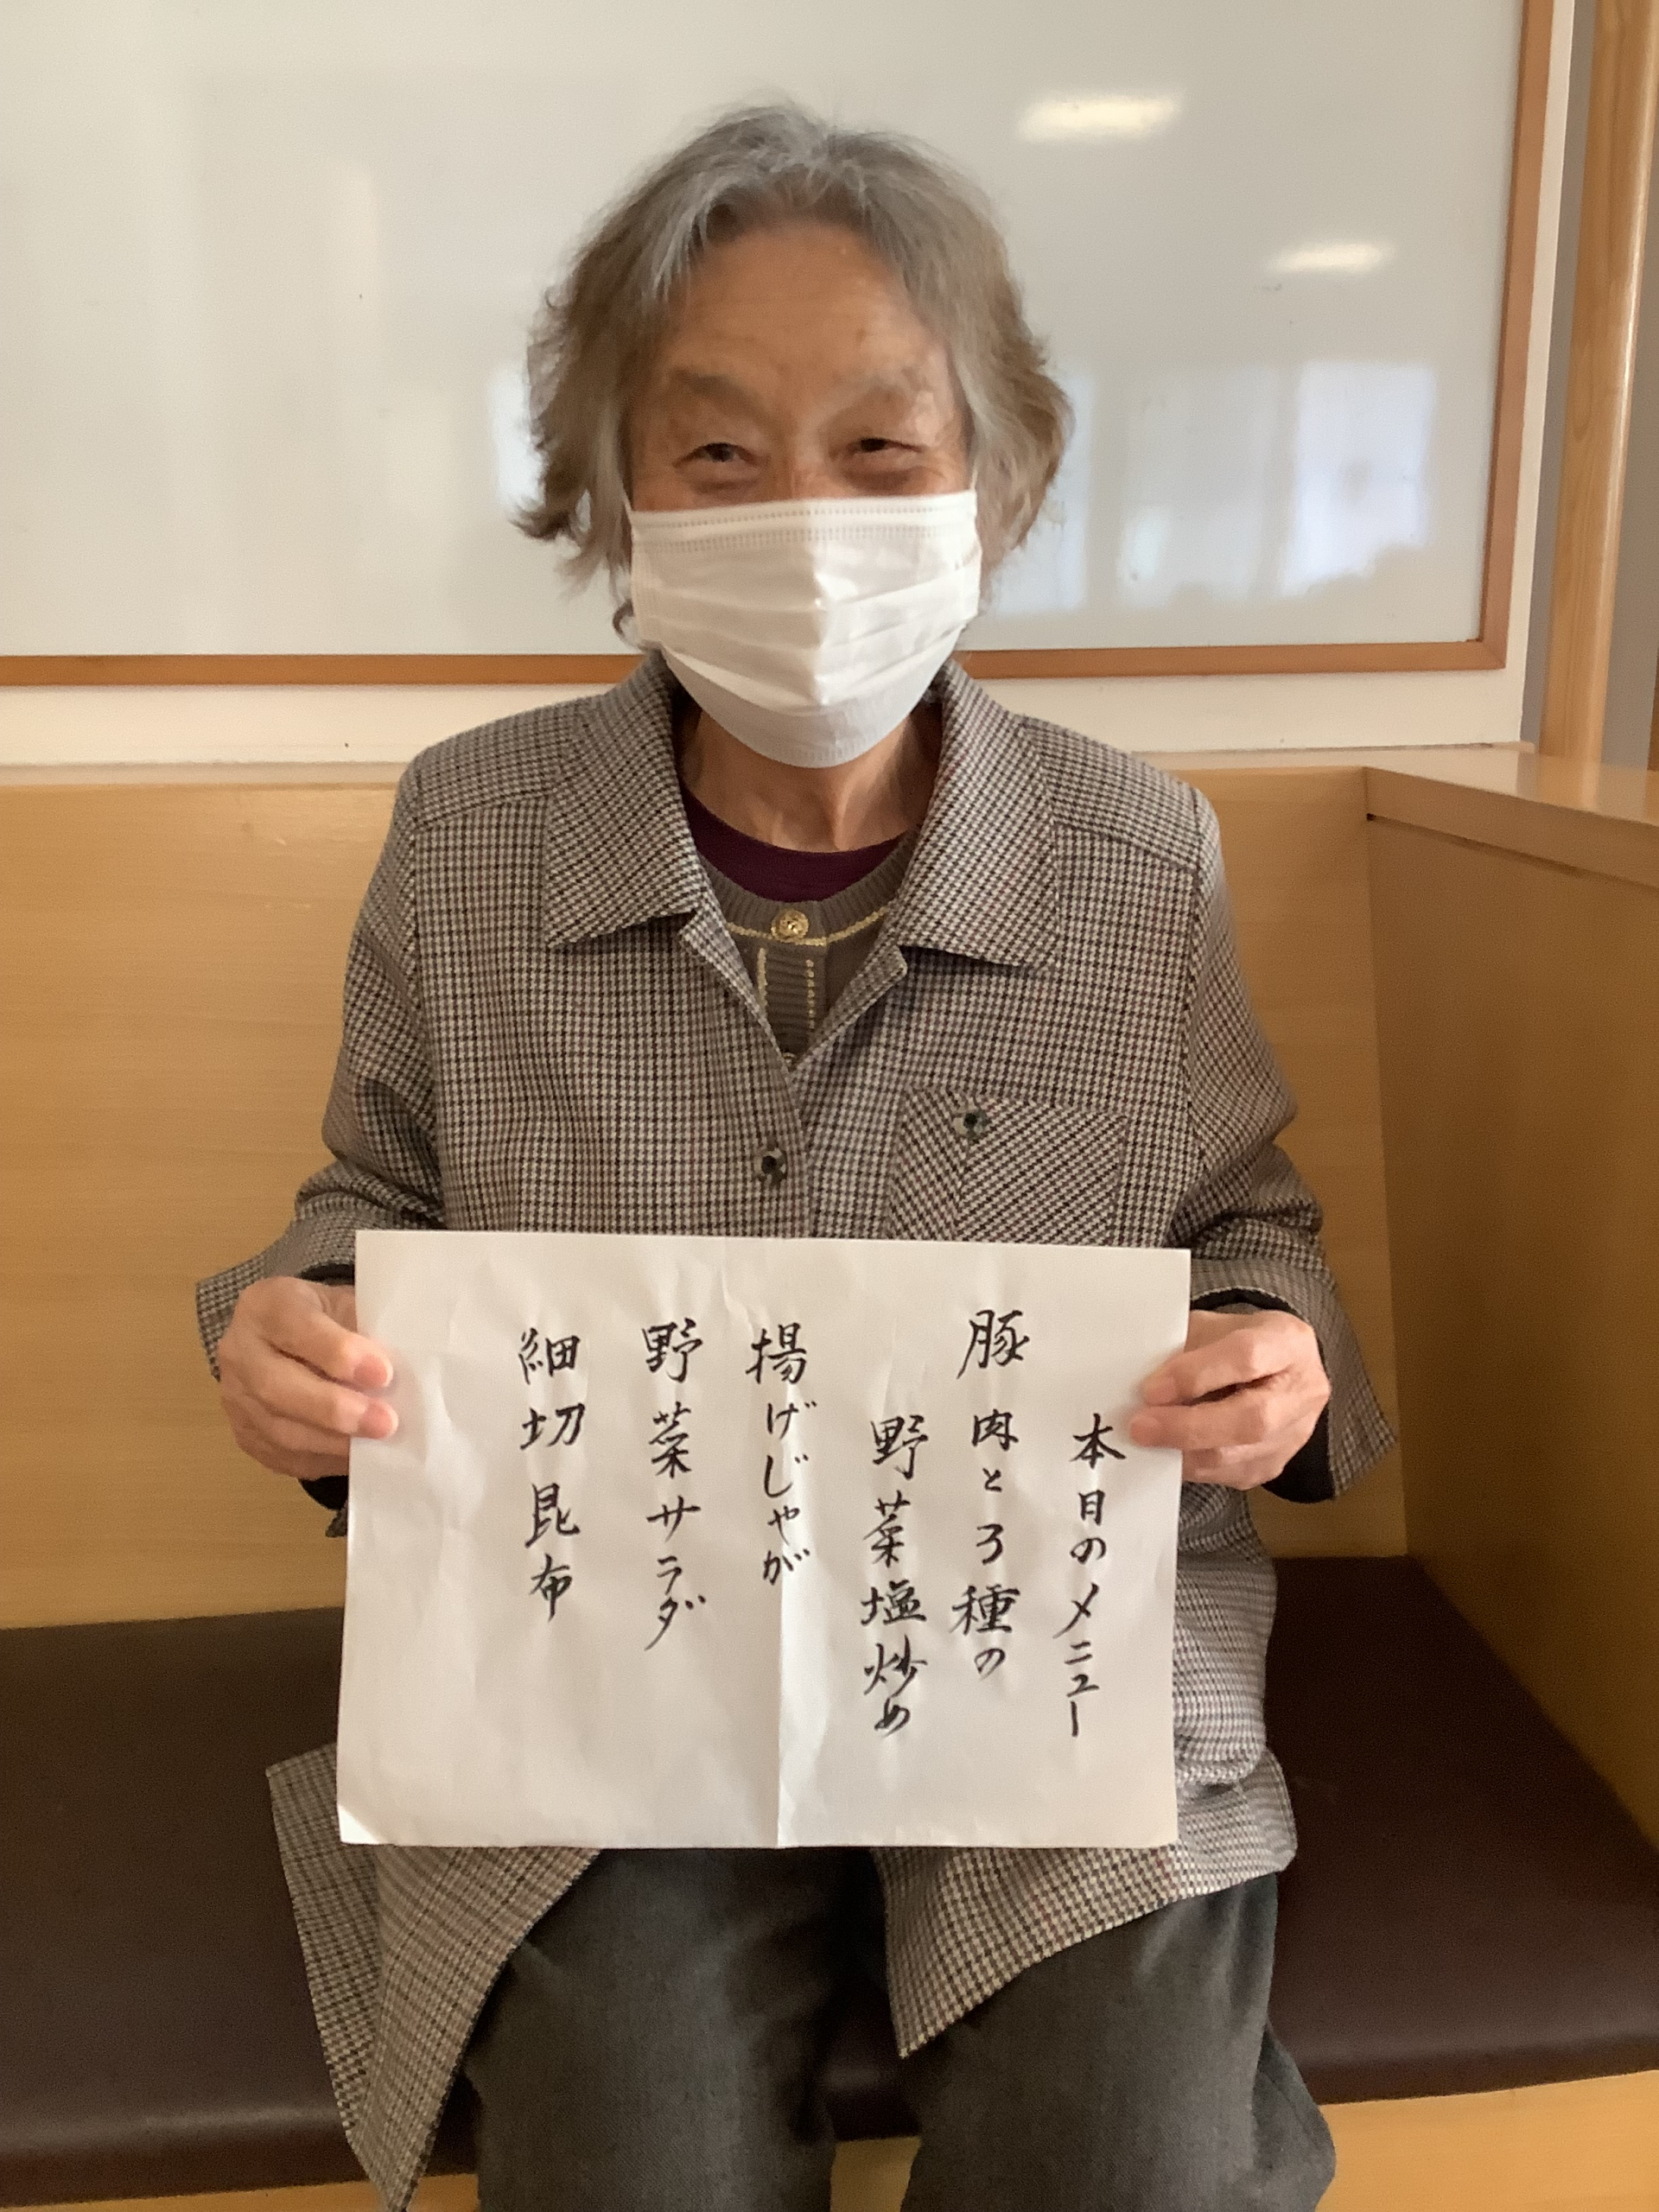 本日のメニュー
豚肉と3種の
野菜塩炒め
揚げじゃが
野菜サラダ
細切昆布